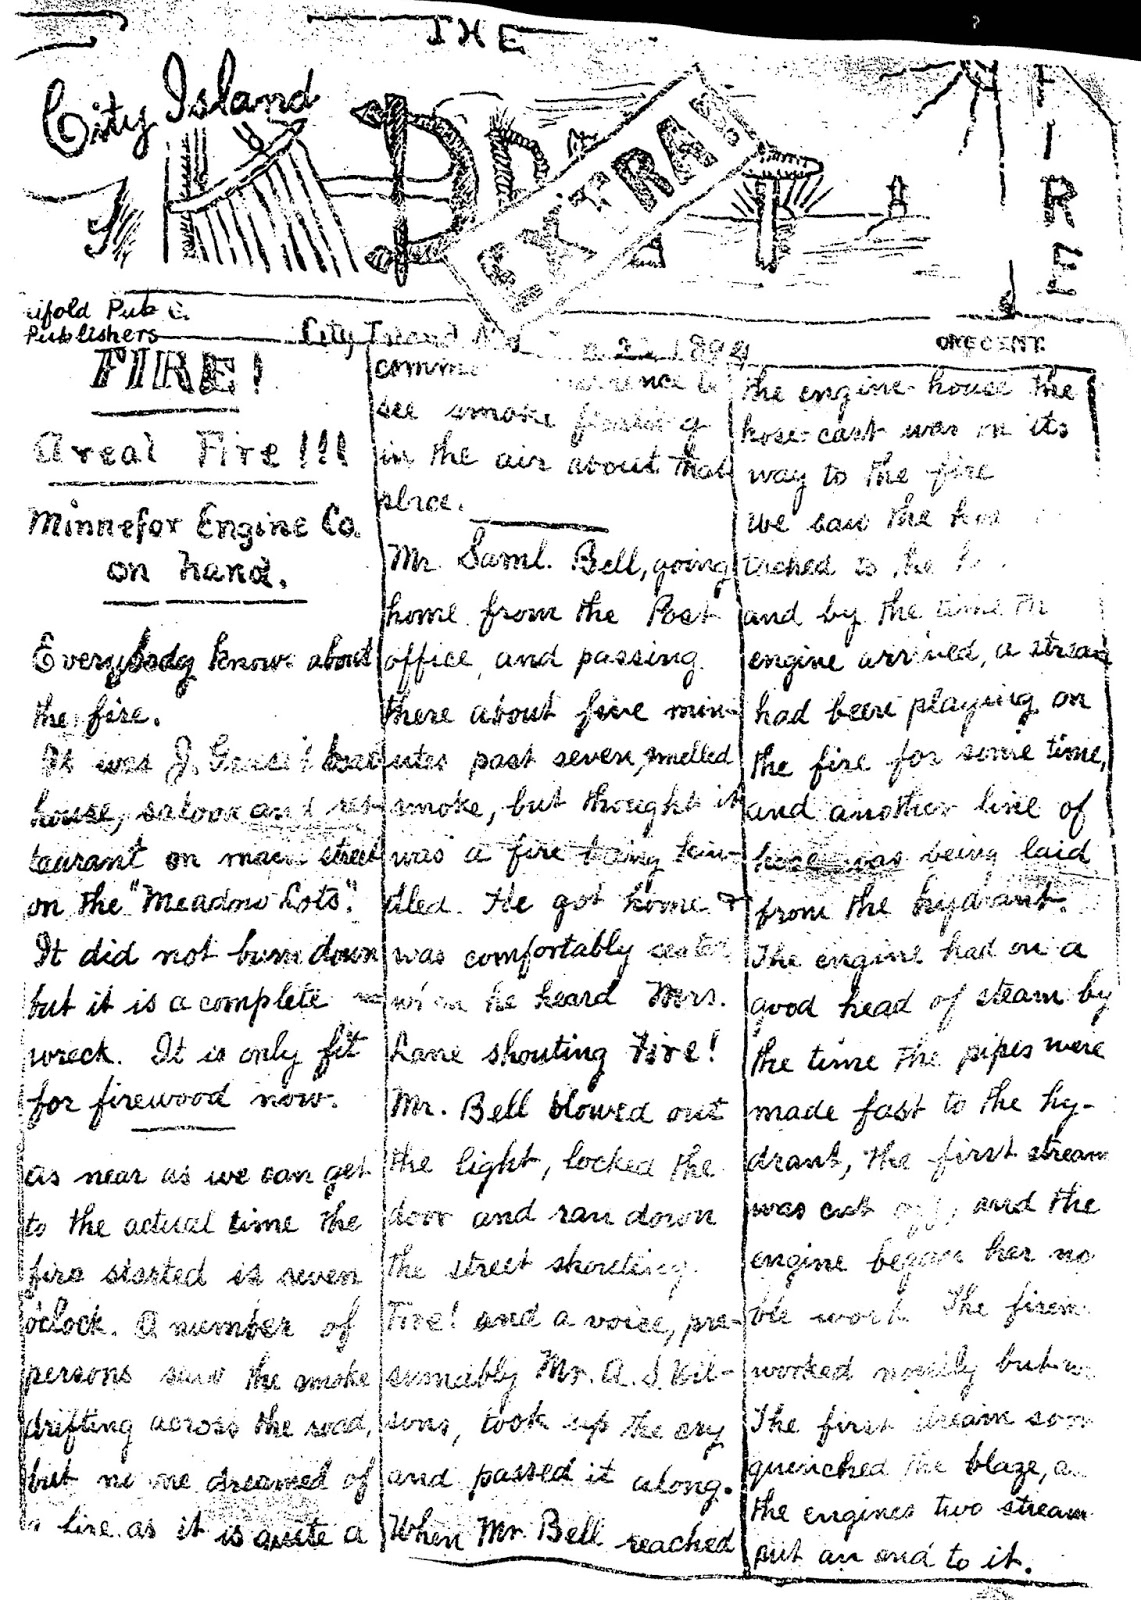 THE
City Island
DR
EXTRA!
FIRE
ifold Pub C.
Publishers
City Island 1894
ONE CENT.
FIRE!
A real Fire!!!
Minnefor Engine Co.
on hand.
Everybody knows about
the fire.
It was J. boat
house, saloon and res-
taurant on main street
on the "Meadow Lots".
It did not burn down
but it is a complete
wreck. It is only fit
for firewood now.
As near as we can get
to the actual time the
fire started is seven
o'clock. A number of
persons saw the smoke
drifting across the road,
but no one dreamed of
a fire as it is quite a
comm
see smoke floating
in the air about that
place.
Mr. Saml. Bell, going
home from the Post
office, and passing
there about five min-
utes past seven, smelled
smoke, but thought it
was a fire being kin-
dled. He got home &
was comfortably seated
when he heard Mrs.
Lane shouting Fire!
Mr. Bell blowed out
the light, locked the
door and ran down
the street shouting
Fire! and a voice, pre-
sumably Mr. A. S.
took up the cry
and passed it along.
When Mr. Bell reached
the engine house the
hose cart was on its
way to the fire
we saw the hos
tached to the h
and by the time th
engine arrived, a stream
had been playing on
the fire for some time,
and another line of
hose was being laid
from the hydrant.
The engine had on a
good head of steam by
the time the pipes were
made fast to the hy-
drant, the first stream
was cut off, and the
engine began her no
ble work. The firem
worked nobly but
The first stream soon
quenched the blaze, a
the engines two stream
put an end to it.